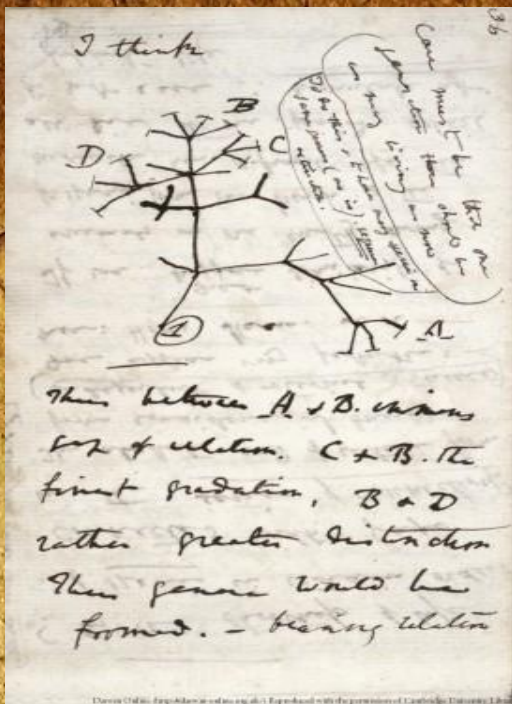 36
I think
Case must be that one
generation then should be
as many living as now
To do this & to have many species in
same genus (as is) requires
extinction.
B
D
C
A
1
Thus between A & B. immens
gap of relation. C & B. the
finest gradation, B & D
rather greater distinction
Thus genera would be
formed. — bearing relation
Darwin Online (http://darwin-online.org.uk/) Reproduced with the permission of Cambridge University Library